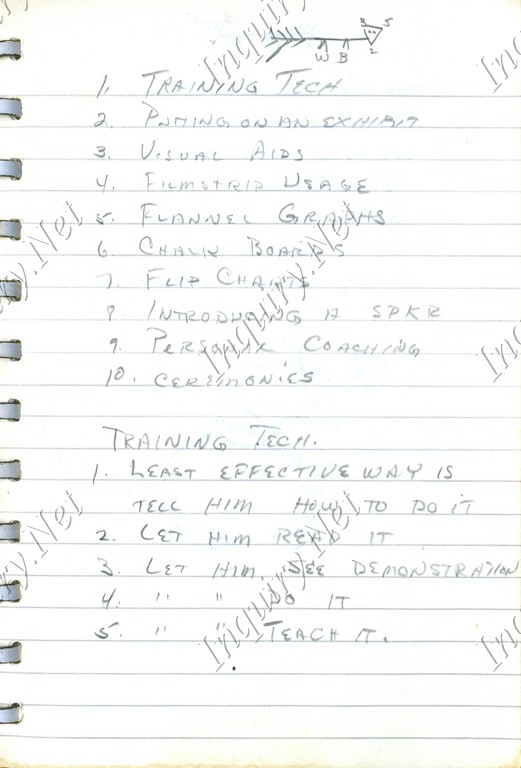 3 5
W B 2
1. TRAINING TECH
2. PUTTING ON AN EXHIBIT
3. VISUAL AIDS
4. FILMSTRIP USAGE
5. FLANNEL GRAPHS
6. CHALK BOARDS
7. FLIP CHARTS
8 INTRODUCING A SPKR
9. PERSONAL COACHING
10. CEREMONIES
TRAINING TECH.
1. LEAST EFFECTIVE WAY IS
TELL HIM HOW TO DO IT
2. LET HIM READ IT
3. LET HIM SEE DEMONSTRATION
4. " " DO IT
5. " " TEACH IT.
Inquiry.Net